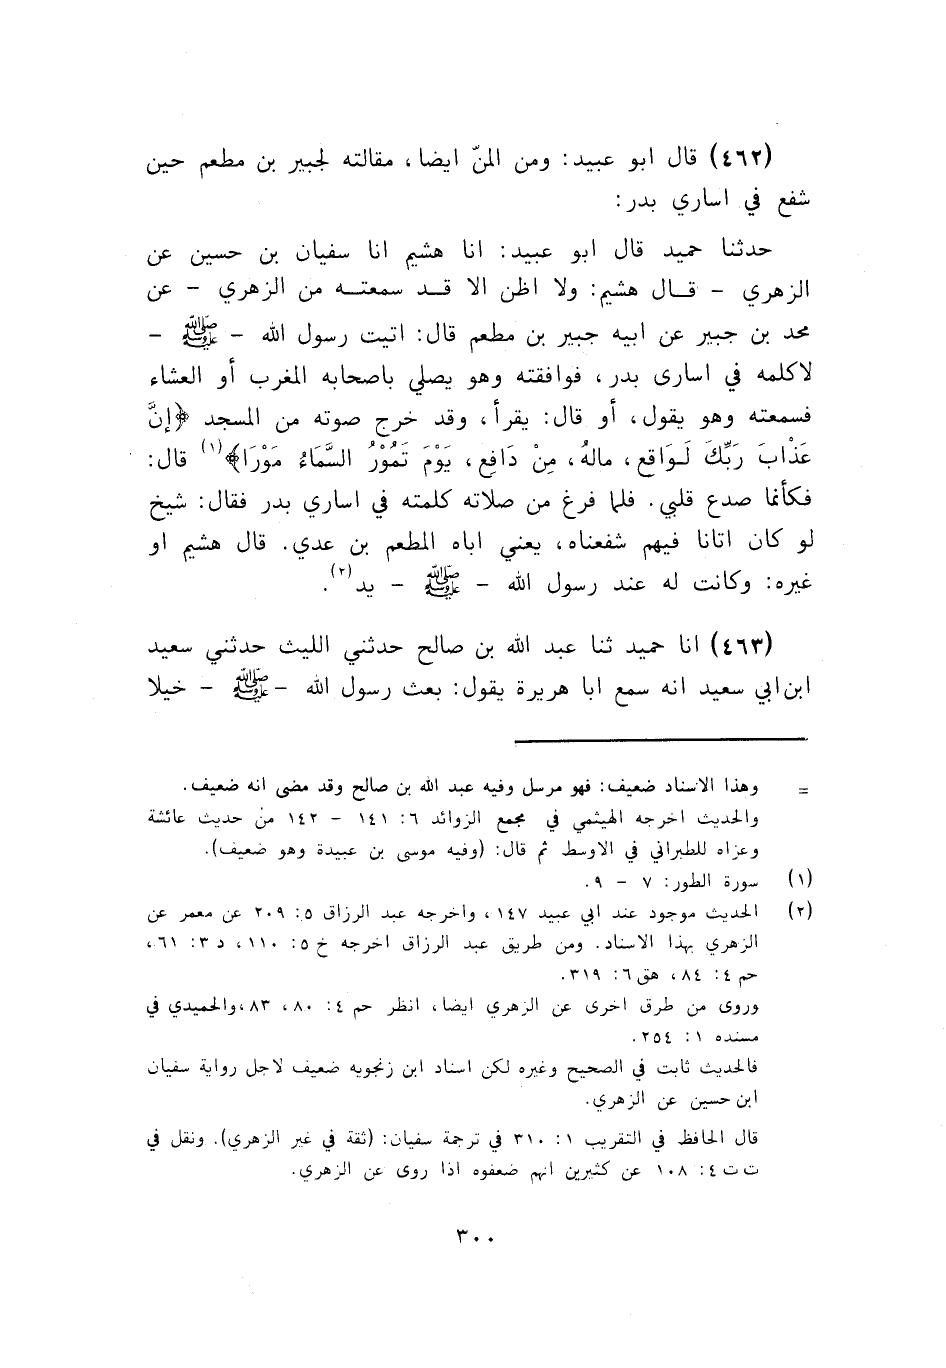 (٤٦٢) قال ابو عبيد: ومن المنّ ايضا، مقالته لجبير بن مطعم حين
شفع في اساري بدر:
حدثنا حميد قال ابو عبيد: انا هشيم انا سفيان بن حسين عن
الزهري – قـال هشيم: ولا اظن الا قـد سمعتـه من الزهري – عن
محمد بن جبير عن ابيه جبير بن مطعم قال: اتيت رسول الله – ﷺ –
لاكلمه في اسارى بدر، فوافقته وهو يصلي باصحابه المغرب أو العشاء
فسمعته وهو يقول، أو قال: يقرأ، وقد خرج صوته من المسجد ﴿إنَّ
عَذْابَ رَبِّكَ لَـوَاقع، مالهُ، مِنْ دَافِع، يَوْمَ تَمُوْرُ السَّمَاءُ مَوْرَا﴾(١) قال:
فكأنما صدع قلبي. فلما فرغ من صلاته كلمته في اساري بدر فقال: شيخ
لو كان اتانا فيهم شفعناه، يعني اباه المطعم بن عدي. قال هشيم او
غيره: وكانت له عند رسول الله – ﷺ – يد(٢).
(٤٦٣) انا حميد ثنا عبد الله بن صالح حدثني الليث حدثني سعيد
ابن ابي سعيد انه سمع ابا هريرة يقول: بعث رسول الله –ﷺ – خيلا
= وهذا الاسناد ضعيف: فهو مرسل وفيه عبد الله بن صالح وقد مضى انه ضعيف.
والحديث اخرجه الهيثمي في مجمع الزوائد ٦: ١٤١ – ١٤٢ من حديث عائشة
وعزاه للطبراني في الاوسط ثم قال: (وفيه موسى بن عبيدة وهو ضعيف).
(١) سورة الطور: ٧ – ٩.
(٢) الحديث موجود عند ابي عبيد ١٤٧، واخرجه عبد الرزاق ٥: ٢٠٩ عن معمر عن
الزهري بهذا الاسناد. ومن طريق عبد الرزاق اخرجه خ ٥: ١١٠، د ٣: ٦١،
حم ٤: ٨٤، هق ٦: ٣١٩.
وروى من طرق اخرى عن الزهري ايضا، انظر حم ٤: ٨٠، ٨٣،والحميدي في
مسنده ١: ٢٥٤.
فالحديث ثابت في الصحيح وغيره لكن اسناد ابن زنجويه ضعيف لاجل رواية سفيان
ابن حسين عن الزهري.
قال الحافظ في التقريب ١: ٣١٠ في ترجمة سفيان: (ثقة في غير الزهري). ونقل في
ت ت ٤: ١٠٨ عن كثيرين انهم ضعفوه اذا روى عن الزهري.
٣٠٠